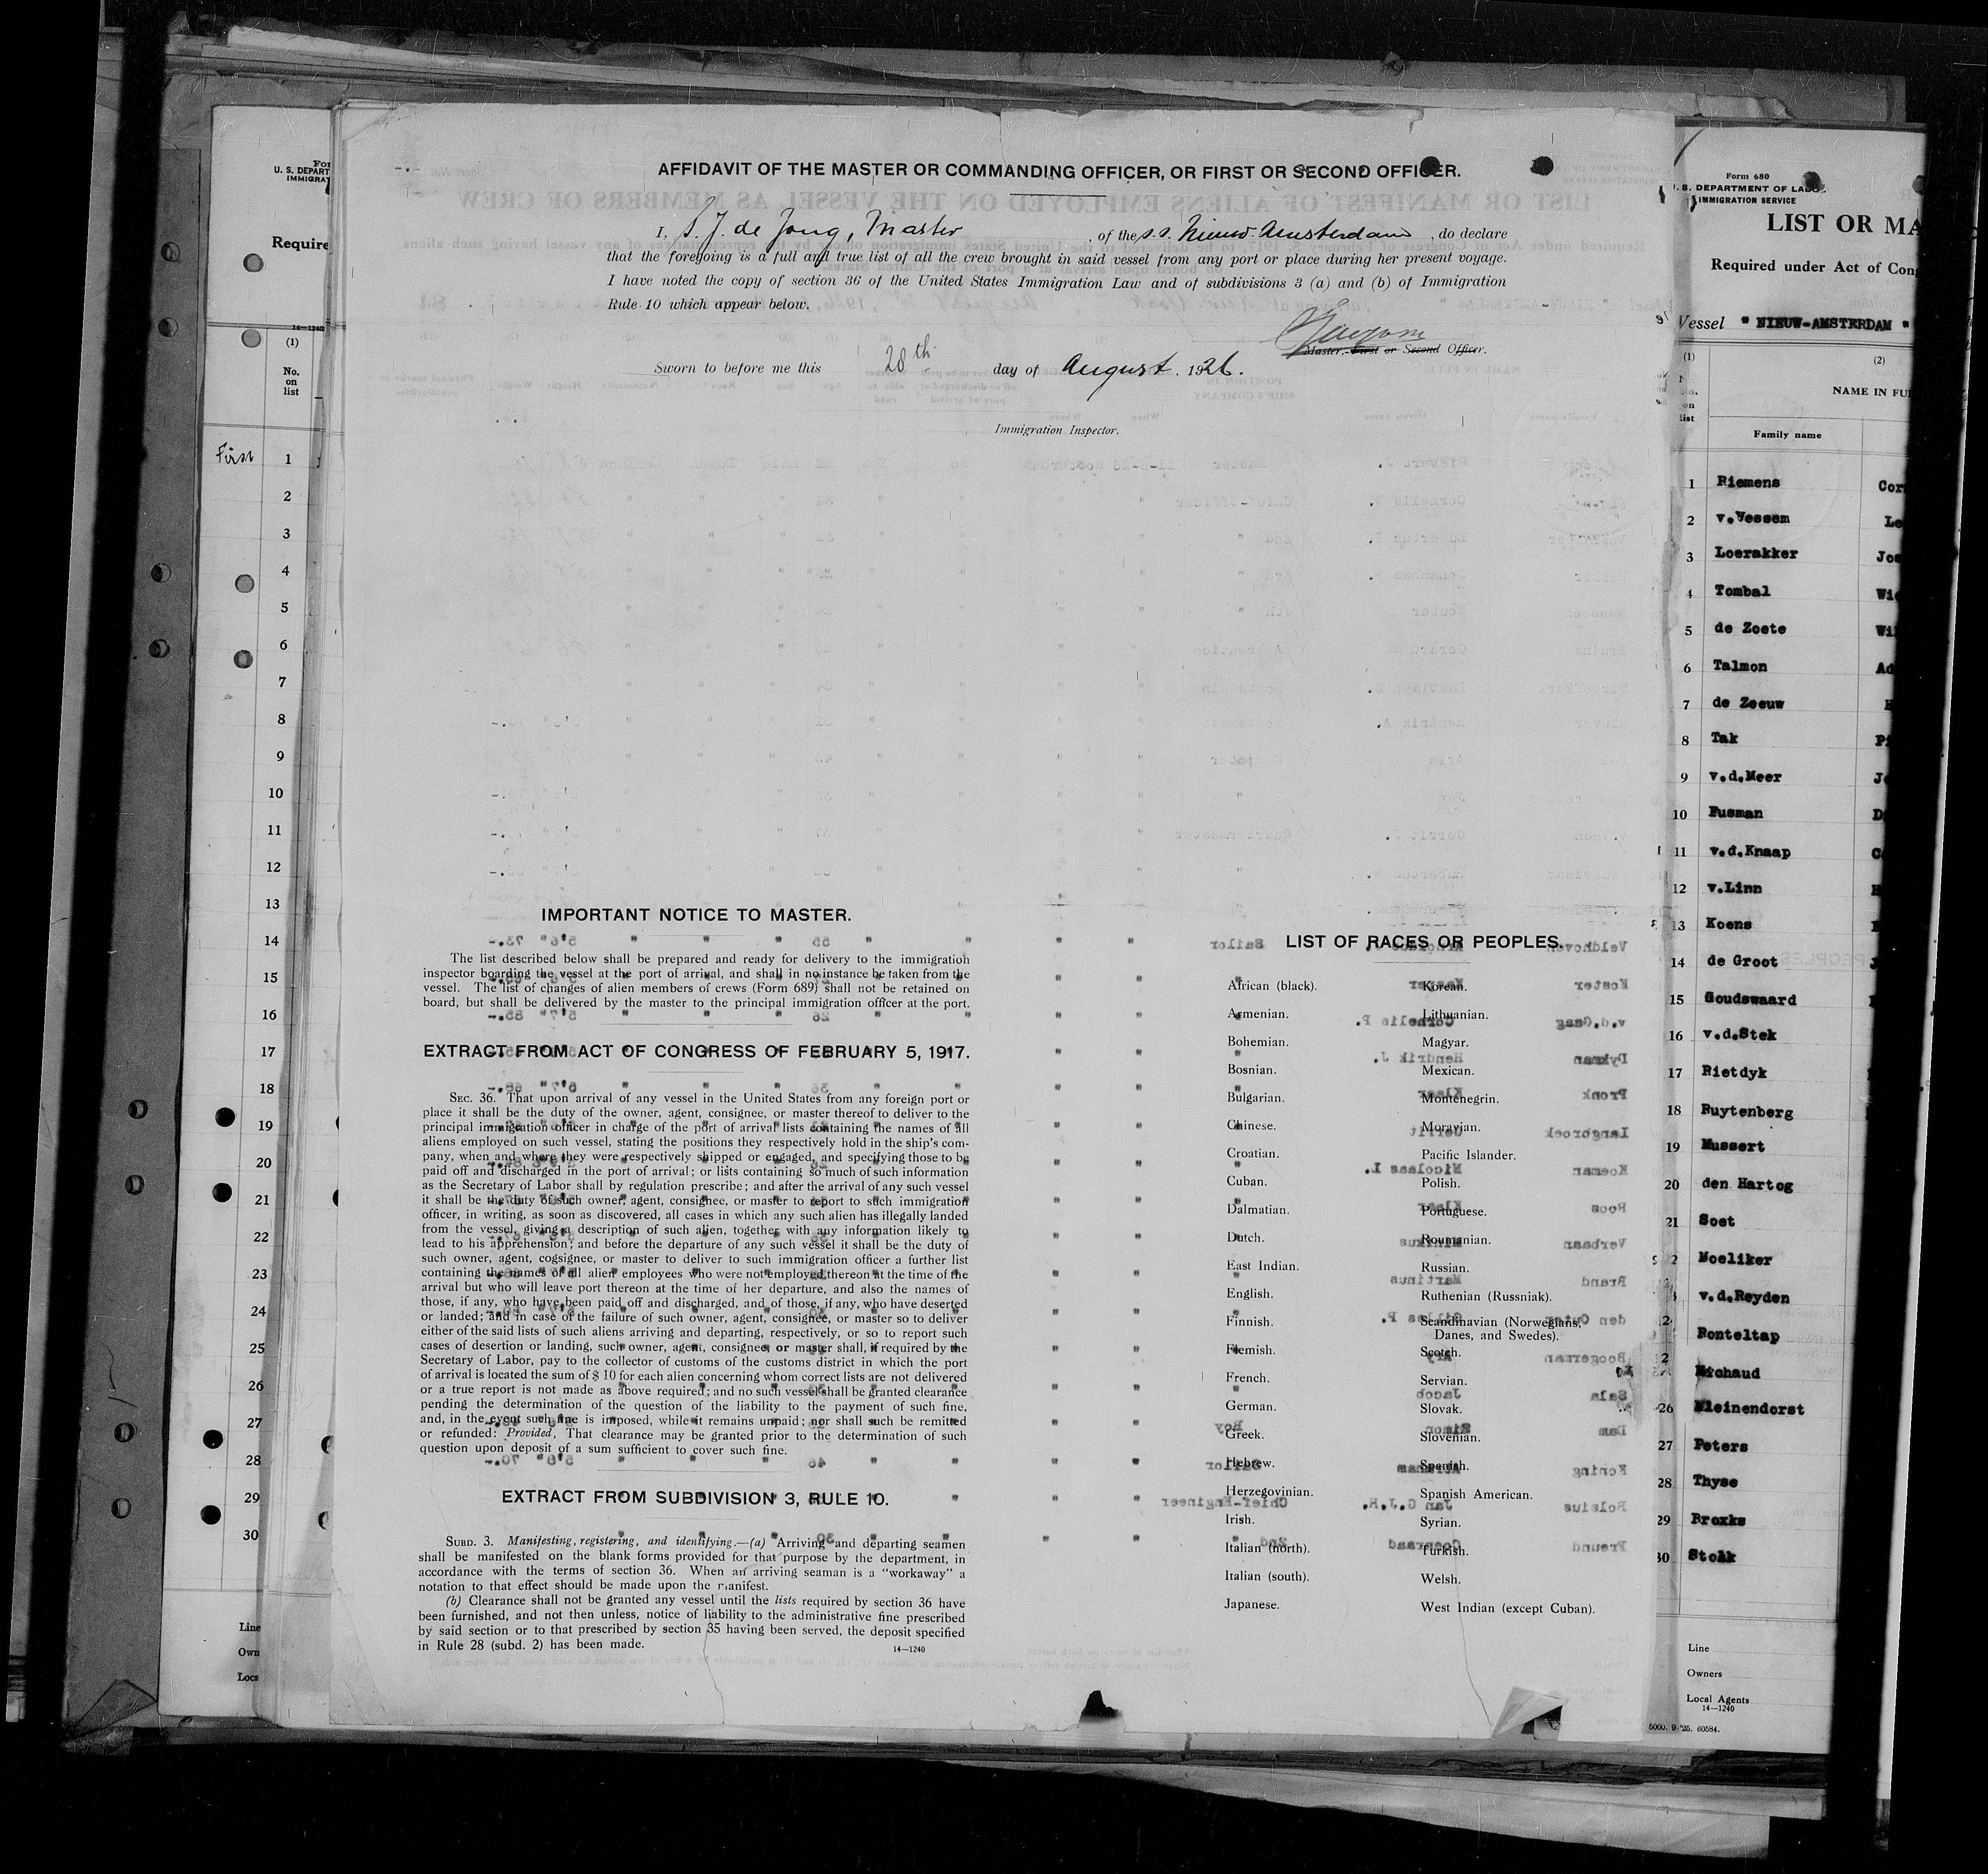 AFFIDAVIT OF THE MASTER OR COMMANDING OFFICER, OR FIRST OR SECOND OFFICER.
I, S. J. de Jong, Master, of the s.s. Nieuw-Amsterdam, do declare
that the foregoing is a full and true list of all the crew brought in said vessel from any port or place during her present voyage.
I have noted the copy of section 36 of the United States Immigration Law and of subdivisions 3 (a) and (b) of Immigration
Rule 10 which appear below.
Master, First or Second Officer.
Sworn to before me this 28th day of August, 1926.
Immigration Inspector.
IMPORTANT NOTICE TO MASTER.
The list described below shall be prepared and ready for delivery to the immigration
inspector boarding the vessel at the port of arrival, and shall in no instance be taken from the
vessel. The list of changes of alien members of crews (Form 689) shall not be retained on
board, but shall be delivered by the master to the principal immigration officer at the port.
EXTRACT FROM ACT OF CONGRESS OF FEBRUARY 5, 1917.
SEC. 36. That upon arrival of any vessel in the United States from any foreign port or
place it shall be the duty of the owner, agent, consignee, or master thereof to deliver to the
principal immigration officer in charge of the port of arrival lists containing the names of all
aliens employed on such vessel, stating the positions they respectively hold in the ship's com-
pany, when and where they were respectively shipped or engaged, and specifying those to be
paid off and discharged in the port of arrival; or lists containing so much of such information
as the Secretary of Labor shall by regulation prescribe; and after the arrival of any such vessel
it shall be the duty of such owner, agent, consignee, or master to report to such immigration
officer, in writing, as soon as discovered, all cases in which any such alien has illegally landed
from the vessel, giving a description of such alien, together with any information likely to
lead to his apprehension; and before the departure of any such vessel it shall be the duty of
such owner, agent, cogsignee, or master to deliver to such immigration officer a further list
containing the names of all alien employees who were not employed thereon at the time of the
arrival but who will leave port thereon at the time of her departure, and also the names of
those, if any, who have been paid off and discharged, and of those, if any, who have deserted
or landed; and in case of the failure of such owner, agent, consignee, or master so to deliver
either of the said lists of such aliens arriving and departing, respectively, or so to report such
cases of desertion or landing, such owner, agent, consignee, or master shall, if required by the
Secretary of Labor, pay to the collector of customs of the customs district in which the port
of arrival is located the sum of $10 for each alien concerning whom correct lists are not delivered
or a true report is not made as above required; and no such vessel shall be granted clearance
pending the determination of the question of the liability to the payment of such fine,
and, in the event such fine is imposed, while it remains unpaid; nor shall such be remitted
or refunded: Provided, That clearance may be granted prior to the determination of such
question upon deposit of a sum sufficient to cover such fine.
EXTRACT FROM SUBDIVISION 3, RULE 10.
SUBD. 3. Manifesting, registering, and identifying.—(a) Arriving and departing seamen
shall be manifested on the blank forms provided for that purpose by the department, in
accordance with the terms of section 36. When an arriving seaman is a "workaway" a
notation to that effect should be made upon the manifest.
(b) Clearance shall not be granted any vessel until the lists required by section 36 have
been furnished, and not then unless, notice of liability to the administrative fine prescribed
by said section or to that prescribed by section 35 having been served, the deposit specified
in Rule 28 (subd. 2) has been made.
14—1240
LIST OF RACES OR PEOPLES.
African (black).
Armenian.
Bohemian.
Bosnian.
Bulgarian.
Chinese.
Croatian.
Cuban.
Dalmatian.
Dutch.
East Indian.
English.
Finnish.
Flemish.
French.
German.
Greek.
Hebrew.
Herzegovinian.
Irish.
Italian (north).
Italian (south).
Japanese.
Korean.
Lithuanian.
Magyar.
Mexican.
Montenegrin.
Moravian.
Pacific Islander.
Polish.
Portuguese.
Roumanian.
Russian.
Ruthenian (Russniak).
Scandinavian (Norwegians,
Danes, and Swedes).
Scotch.
Servian.
Slovak.
Slovenian.
Spanish.
Spanish American.
Syrian.
Turkish.
Welsh.
West Indian (except Cuban).
For
U. S. DEPART
IMMIGRAT
Require
14—1240
(1)
No.
on
list
First 1
2
3
4
5
6
7
8
9
10
11
12
13
14
15
16
17
18
19
20
21
22
23
24
25
26
27
28
29
30
Line
Own
Loca
Form 680
U. S. DEPARTMENT OF LABO
IMMIGRATION SERVICE
LIST OR MA
Required under Act of Cong
Vessel " NIEUW-AMSTERDAM "
(1) (2)
No.
on
list
NAME IN FU
Family name
1 Riemens Cor
2 v.Vessem Le
3 Loerakker Jos
4 Tombal Wi
5 de Zoete Wi
6 Talmon Ad
7 de Zeeuw
8 Tak Pi
9 v.d.Meer J
10 Fusman D
11 v.d.Knaap C
12 v.Linn H
13 Koens
14 de Groot J
15 Goudswaard
16 v.d.Stek
17 Rietdyk
18 Ruytenberg
19 Mussert
20 den Hartog
21 Soet
22 Moeliker
v.d.Reyden
Ronteltap
Michaud
26 Kleinendorst
27 Peters
28 Thyse
29 Broxks
30 Stolk
Line
Owners
Local Agents
14—1240
5000. 9-'25. 60584.